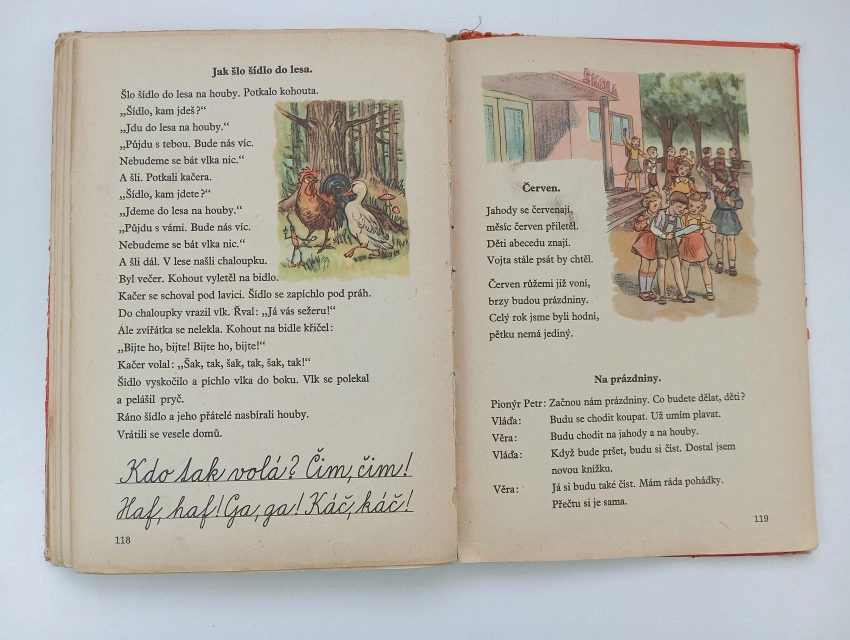 Jak šlo šídlo do lesa.
Šlo šídlo do lesa na houby. Potkalo kohouta.
„Šídlo, kam jdeš?“
„Jdu do lesa na houby.“
„Půjdu s tebou. Bude nás víc.
Nebudeme se bát vlka nic.“
A šli. Potkali kačera.
„Šídlo, kam jdete?“
„Jdeme do lesa na houby.“
„Půjdu s vámi. Bude nás víc.
Nebudeme se bát vlka nic.“
A šli dál. V lese našli chaloupku.
Byl večer. Kohout vyletěl na bidlo.
Kačer se schoval pod lavici. Šídlo se zapíchlo pod práh.
Do chaloupky vrazil vlk. Řval: „Já vás sežeru!“
Ale zvířátka se nelekla. Kohout na bidle křičel:
„Bijte ho, bijte! Bijte ho, bijte!“
Kačer volal: „Šak, tak, šak, tak, šak, tak!“
Šídlo vyskočilo a píchlo vlka do boku. Vlk se polekal
a pelášil pryč.
Ráno šídlo a jeho přátelé nasbírali houby.
Vrátili se vesele domů.
Kdo tak volá? Čim, čim!
Haf, haf! Ga, ga! Káč, káč!
118
ŠKOLA
Červen.
Jahody se červenají,
měsíc červen přiletěl.
Děti abecedu znají.
Vojta stále psát by chtěl.
Červen růžemi již voní,
brzy budou prázdniny.
Celý rok jsme byli hodní,
pětku nemá jediný.
Na prázdniny.
Pionýr Petr: Začnou nám prázdniny. Co budete dělat, děti?
Vláďa: Budu se chodit koupat. Už umím plavat.
Věra: Budu chodit na jahody a na houby.
Vláďa: Když bude pršet, budu si číst. Dostal jsem
novou knížku.
Věra: Já si budu také číst. Mám ráda pohádky.
Přečtu si je sama.
119